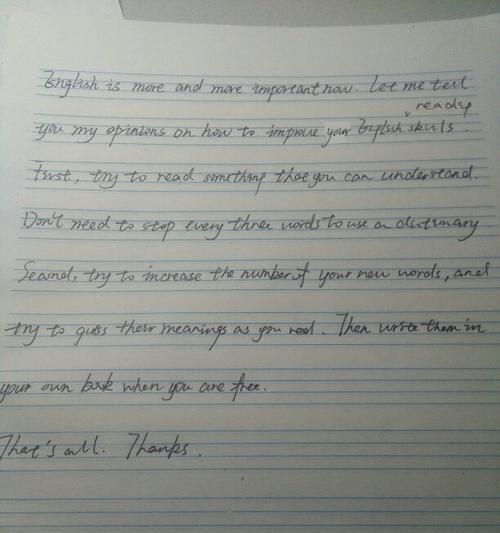 English is more and more important now. Let me tell
ready
you my opinions on how to improve your English skills.
First, try to read something that you can understand.
Don't need to stop every three words to use a dictionary
Second, try to increase the number of your new words, and
try to guess their meanings as you read. Then write them in
your own book when you are free.
That's all. Thanks.